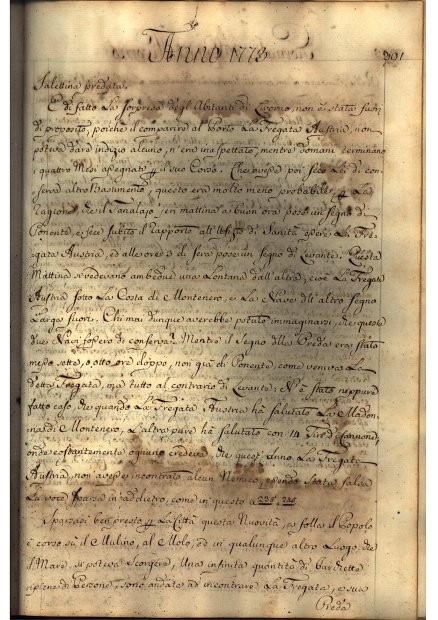 Anno 1773
391
Salettina predata.
E di fatto La sorpresa degl'Abitanti di Livorno, non è stata fuori
di proposito, poiche il comparire al Porto La Fregata Austria, non
poteva dare indizio alcuno, n'era aspettato, mentre domani terminano
i quattro Mesi assegnati il suo Corso. Che avesse poi seco Lei di con-
serva altro Bastimento, questo era molto meno probabile, La
Ragione, che il Fanalajo jeri mattina a buon'ora pose un segno di
Ponente, e fece subito il rapporto all'Ufizio di Sanità essere La Fre-
gata Austria, ed alle ore 3 di sera pose un segno di Levante. Questa
Mattina si vedevano ambedue una Lontana dall'altra, cioè La Fregata
Austria sotto La Costa di Montenero, e La Nave dell'altro segno
Larga fuori. Chi mai dunque averebbe potuto immaginarsi, che queste
due Navi fossero di conserva? Mentre il Segno della Preda era stato
messo sette, o otto ore doppo, non già di Ponente, come veniva La
detta Fregata, ma tutto al contrario di Levante: Nè è stato neppure
fatto caso, che quando La Fregata Austria hà salutato La Madon-
na di Montenero, L'altra pure hà salutato con 14 Tiri di Cannone,
onde costantemente ognuno credeva, che quest'Anno La Fregata
Austria non avesse incontrato alcun Nemico, essendo stata falsa
La voce sparsa in addietro, come in questo a 225. 235
Sparsasi ben presto La Città questa Nuovità, in folla il Popolo
è corso sù il Mulino, al Molo, ed in qualunque altro Luogo, che
il Mare si poteva scorgere, Una infinita quantità di barchette
ripiene di Persone, sono andate ad incontrare La Fregata, e sua
Preda